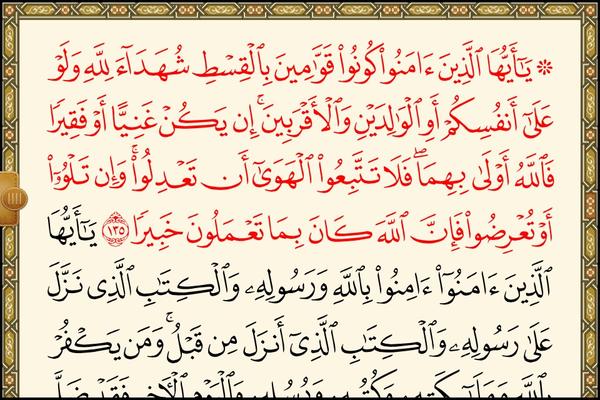 ۞ يَـٰٓأَيُّهَا ٱلَّذِينَ ءَامَنُوا۟ كُونُوا۟ قَوَّٰمِينَ بِٱلْقِسْطِ شُهَدَآءَ لِلَّهِ وَلَوْ
عَلَىٰٓ أَنفُسِكُمْ أَوِ ٱلْوَٰلِدَيْنِ وَٱلْأَقْرَبِينَ ۚ إِن يَكُنْ غَنِيًّا أَوْ فَقِيرًا
فَٱللَّهُ أَوْلَىٰ بِهِمَا ۖ فَلَا تَتَّبِعُوا۟ ٱلْهَوَىٰٓ أَن تَعْدِلُوا۟ ۚ وَإِن تَلْوُۥٓا۟
أَوْ تُعْرِضُوا۟ فَإِنَّ ٱللَّهَ كَانَ بِمَا تَعْمَلُونَ خَبِيرًا ١٣٥ يَـٰٓأَيُّهَا
ٱلَّذِينَ ءَامَنُوٓا۟ ءَامِنُوا۟ بِٱللَّهِ وَرَسُولِهِۦ وَٱلْكِتَـٰبِ ٱلَّذِى نَزَّلَ
عَلَىٰ رَسُولِهِۦ وَٱلْكِتَـٰبِ ٱلَّذِىٓ أَنزَلَ مِن قَبْلُ ۚ وَمَن يَكْفُرْ
بِٱللَّهِ وَمَلَـٰٓئِكَتِهِۦ وَكُتُبِهِۦ وَرُسُلِهِۦ وَٱلْيَوْمِ ٱلْـَٔاخِرِ فَقَدْ ضَلَّ